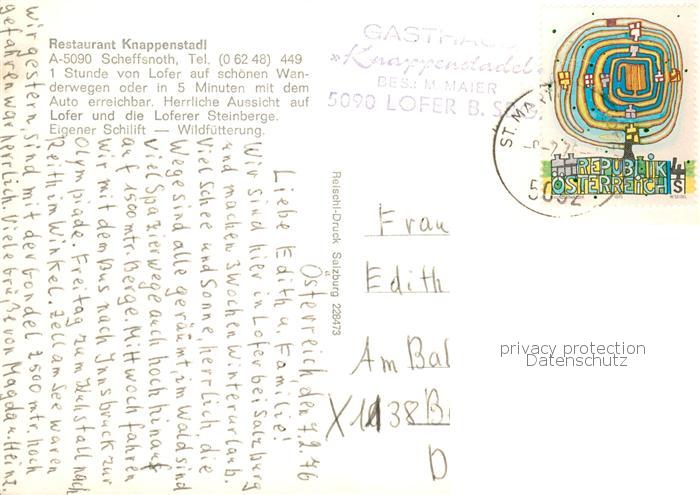 Restaurant Knappenstadl
A-5090 Scheffsnoth, Tel. (0 62 48) 449
1 Stunde von Lofer auf schönen Wan-
derwegen oder in 5 Minuten mit dem
Auto erreichbar. Herrliche Aussicht auf
Lofer und die Loferer Steinberge.
Eigener Schilift — Wildfütterung.
GASTHAUS
»Knappenstadel«
BES.: M. MAIER
5090 LOFER B. SBG.
ST. MA
5092
REPUBLIK
ÖSTERREICH
4 S
1975
Österreich, den 7.2.76
Liebe Edith u. Familie!
Wir sind hier in Lofer bei Salzburg
und machen 3 Wochen Winterurlaub.
Viel Schnee und Sonne, herrlich, die
Wege sind alle geräumt, im Wald sind
viel Spazierwege auch hoch hinauf
auf 1500 mtr. Berge. Mittwoch fahren
wir mit dem Bus nach Innsbruck zur
Olympiade. Freitag zum Kuhstall nach
Reith im Winkel. Zell am See waren
wir gestern, sind mit der Gondel 2500 mtr. hoch
gefahren war herrlich. Viele Grüße von Magda u. Heinz.
Reischl-Druck Salzburg 228473
Frau
Edith
Am Bal
X 1138 B
D
privacy protection
Datenschutz